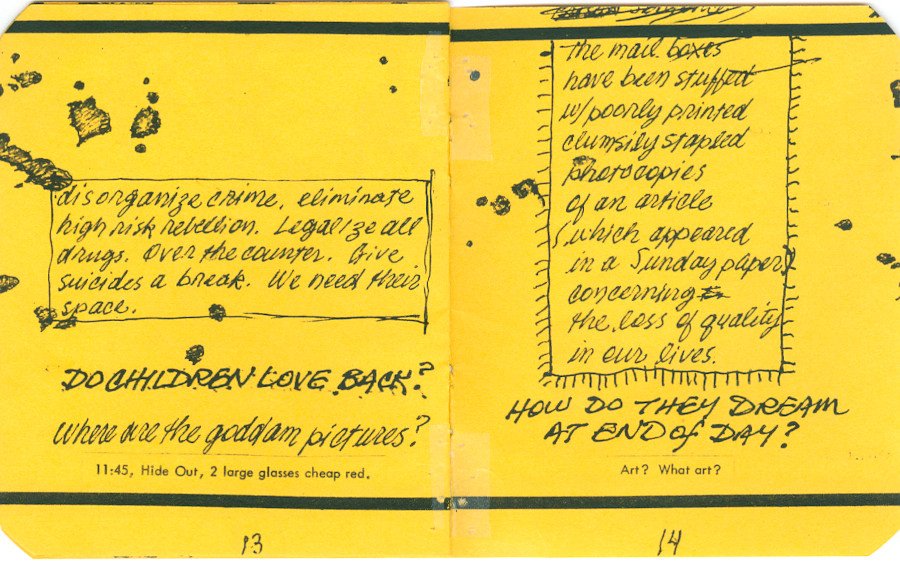 disorganize crime, eliminate
high risk rebellion. Legalize all
drugs. Over the counter. Give
suicides a break. We need their
space.
DO CHILDREN LOVE BACK?
Where are the goddam pictures?
11:45, Hide Out, 2 large glasses cheap red.
13
the mail boxes
have been stuffed
w/poorly printed
clumsily stapled
photocopies
of an article
(which appeared
in a Sunday paper)
concerning
the loss of quality
in our lives.
HOW DO THEY DREAM
AT END OF DAY?
Art? What art?
14